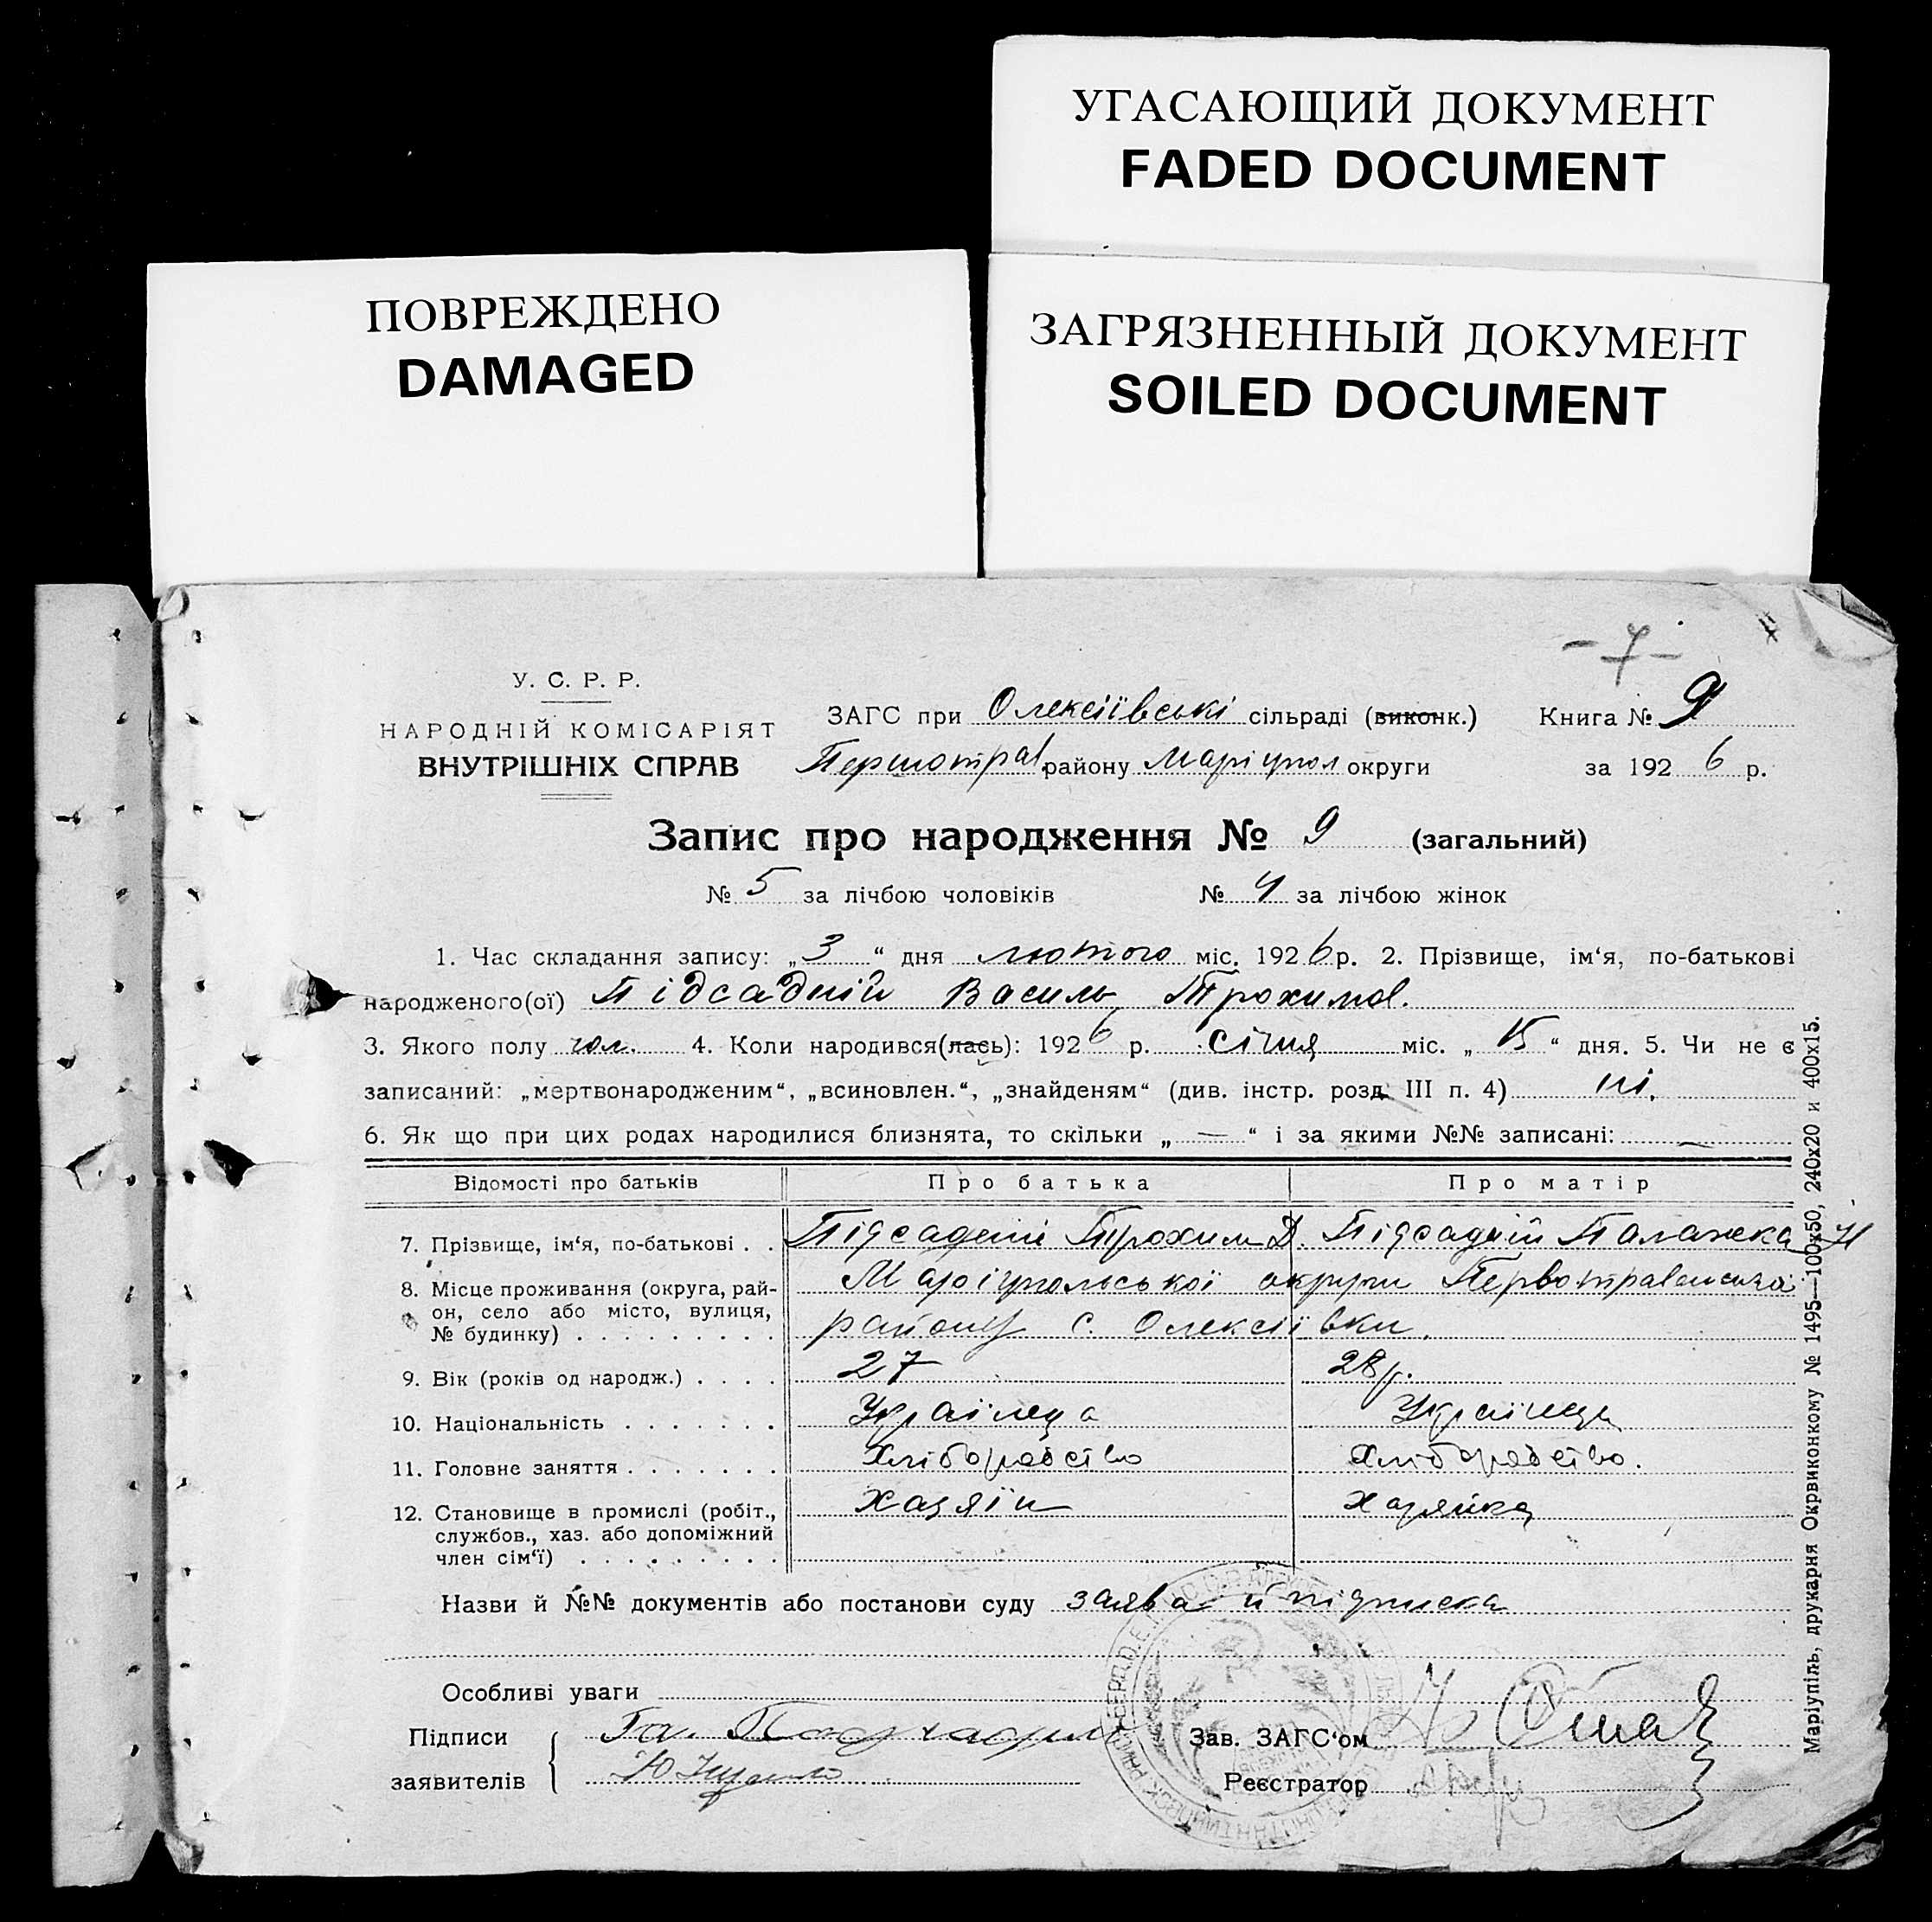 УГАСАЮЩИЙ ДОКУМЕНТ
FADED DOCUMENT
ПОВРЕЖДЕНО
DAMAGED
ЗАГРЯЗНЕННЫЙ ДОКУМЕНТ
SOILED DOCUMENT
- 7 -
У. С. Р. Р.
НАРОДНІЙ КОМІСАРІЯТ
ВНУТРІШНІХ СПРАВ
ЗАГС при Олексіївські сільраді (виконк.) Книга №
Першотрав. району Маріупол округи за 1926 р.
Запис про народження № 9 (загальний)
№ 5 за лічбою чоловіків № 4 за лічбою жінок
1. Час складання запису: „3“ дня лютого міс. 1926 р. 2. Прізвище, ім‘я, по-батькові
народженого(ої) Підсадній Василь Трохимов.
3. Якого полу чол. 4. Коли народився(лась): 1926 р. січня міс. „15“ дня. 5. Чи не є
записаний: „мертвонародженим“, „всиновлен.“, „знайденям“ (див. інстр. розд. III п. 4) ні.
6. Як що при цих родах народилися близнята, то скільки „—“ і за якими №№ записані: —
Відомості про батьків Про батька Про матір
7. Прізвище, ім‘я, по-батькові . . Підсадній Трохим Д. Підсадній Палажка
8. Місце проживання (округа, рай- Маріупольської округи Первотравенського
он, село або місто, вулиця,
№ будинку) . . . . . . . . . району с. Олексіївки.
9. Вік (років од народж.) . . . . 27 28 р.
10. Національність . . . . . . . Українца Українца
11. Головне заняття . . . . . . . Хліборобство Хліборобство.
12. Становище в промислі (робіт., Хазяїн Хазяйка
службов., хаз. або допоміжний
член сім‘ї) . . . . . . . . .
Назви й №№ документів або постанови суду заява й підписка
Особливі уваги
Підписи
заявителів
Зав. ЗАГС‘ом
Реєстратор
Маріупіль, друкарня Окрвиконкому № 1495—100х50, 240х20 и 400х15.